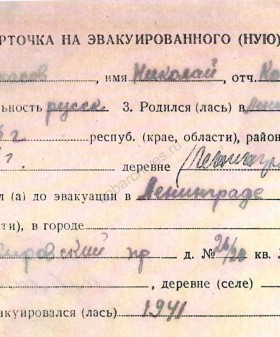 РТОЧКА НА ЭВАКУИРОВАННОГО (НУЮ)
, имя Николай , отч.
льность русск 3. Родился (лась) в
г респуб. (крае, области), район
г. деревне
л (а) до эвакуации в Ленинграде
ти), в городе
ировский пр д. № 26/20 кв.
, деревне (селе)
акуировался (лась) 1941